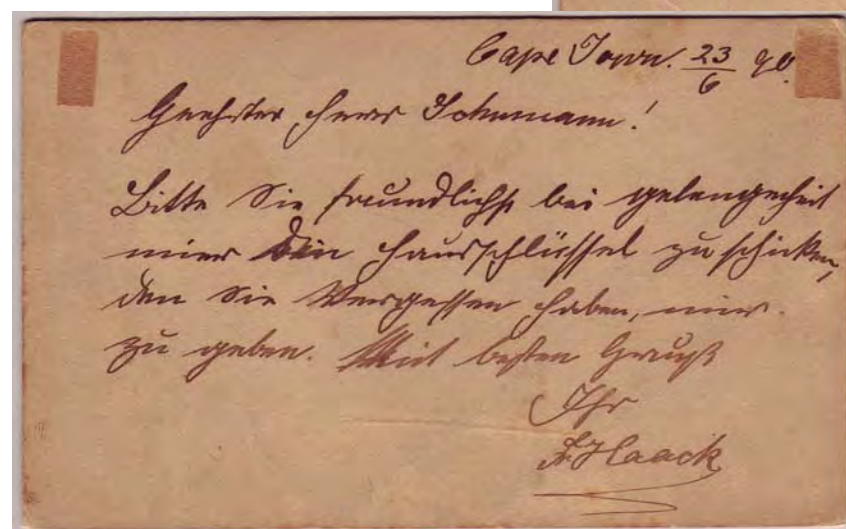 Cape Town. 23/6 90.
Geehrter Herr Schumann!
Bitte Sie freundlichst bei gelengenheit
mier den Hausschlüssel zu schicken,
den Sie Vergessen haben, mier.
zu geben. Mit besten Gruß
Ihr
Haack